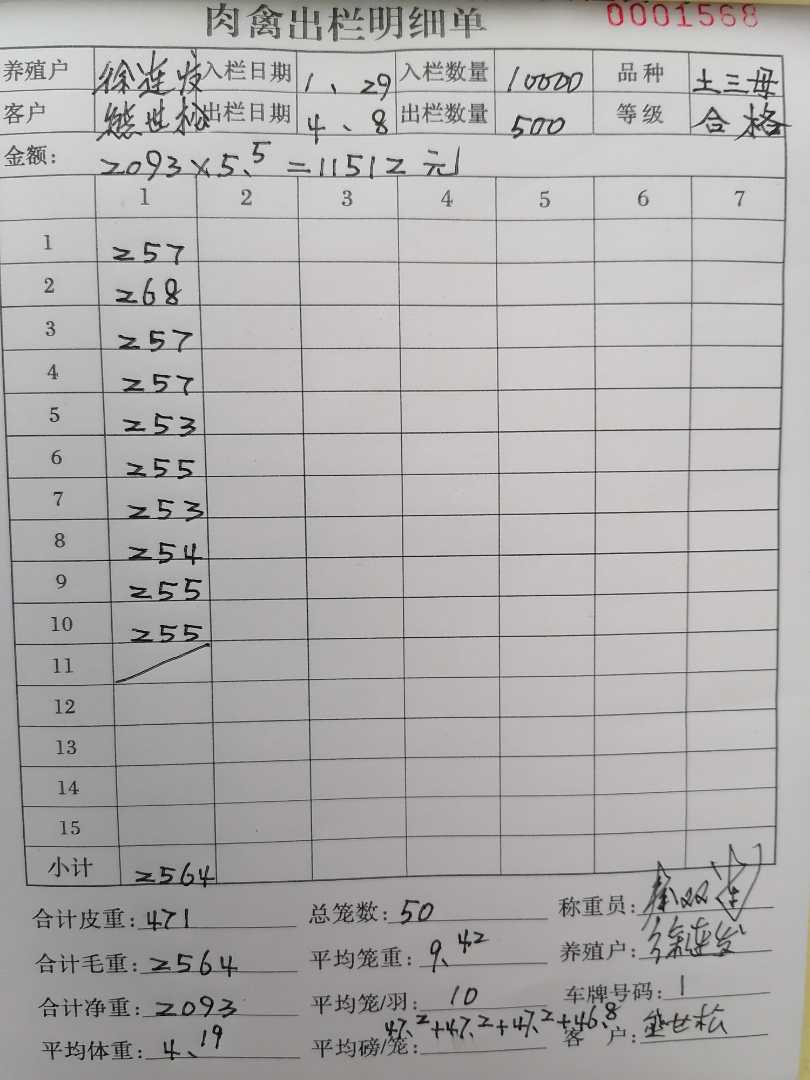 肉禽出栏明细单 0001568
养殖户 徐连发 入栏日期 1、29 入栏数量 10000 品种 土三母
客户 熊世松 出栏日期 4、8 出栏数量 500 等级 合格
金额: 2093×5.5=11512元
1 2 3 4 5 6 7
1 257
2 268
3 257
4 257
5 253
6 255
7 253
8 254
9 255
10 255
11
12
13
14
15
小计 2564
合计皮重: 471 总笼数: 50 称重员:
合计毛重: 2564 平均笼重: 9.42 养殖户: 徐连发
合计净重: 2093 平均笼/羽: 10 车牌号码: 1
47.2+47.2+47.2+46.8
平均体重: 4.19 平均磅/笼: 客户: 熊世松